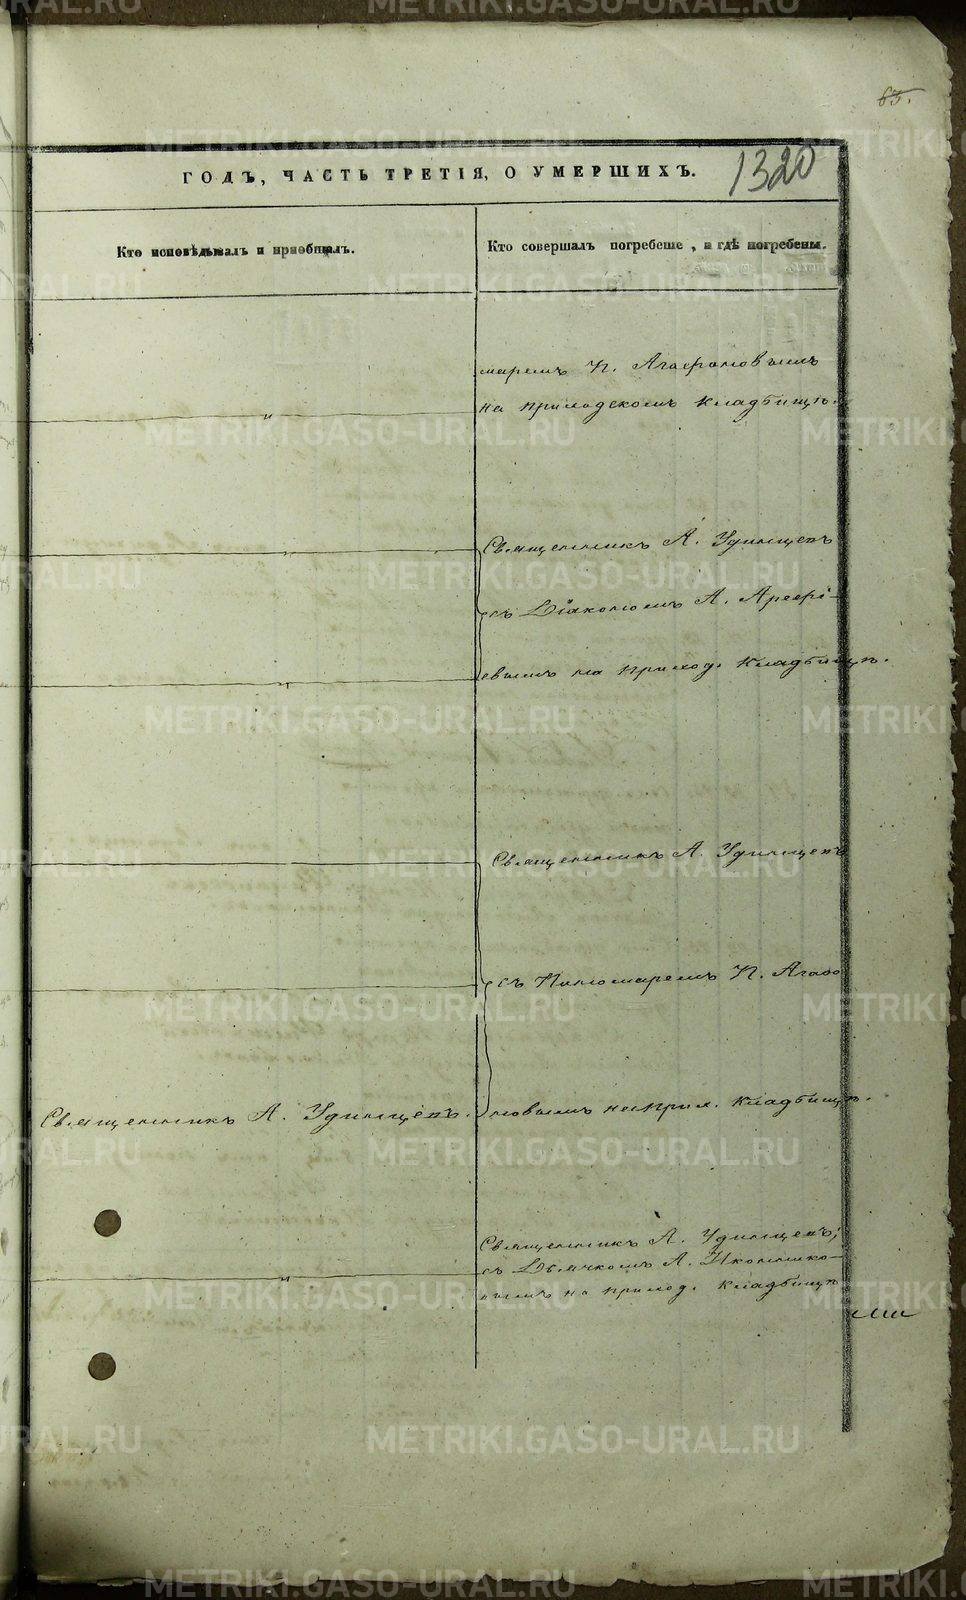 63.
1320
ГОДЪ, ЧАСТЬ ТРЕТІЯ, О УМЕРШИХЪ.
Кто исповѣдывалъ и пріобщалъ.
Кто совершалъ погребеніе, и гдѣ погребены.
маремъ П. Агафоновымъ
на приходскомъ кладбищѣ.
Священникъ А. Удинцевъ
съ Діакономъ А. Арефі-
евымъ на приход. кладбищѣ.
Священникъ А. Удинцевъ
съ Пономаремъ П. Агафо
Священникъ А. Удинцевъ.
новымъ на прих. кладбищѣ.
Священникъ А. Удинцевъ,
съ Дьячкомъ А. Иконнико-
вымъ на приход. кладбищѣ
METRIKI.GASO-URAL.RU